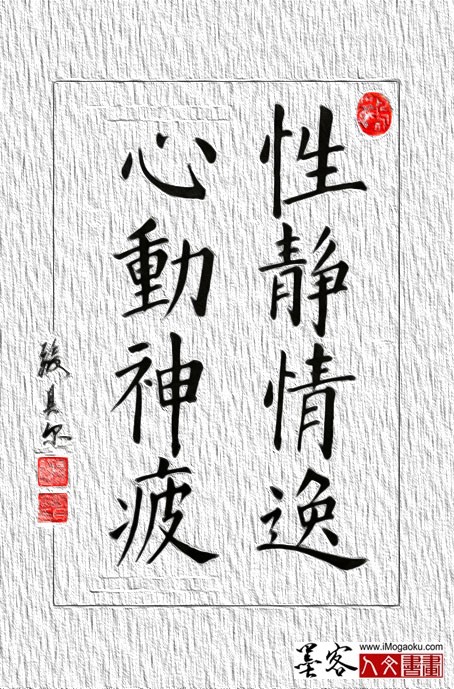 性静情逸
心動神疲
墨客
www.iMogaoku.com
人文書畫